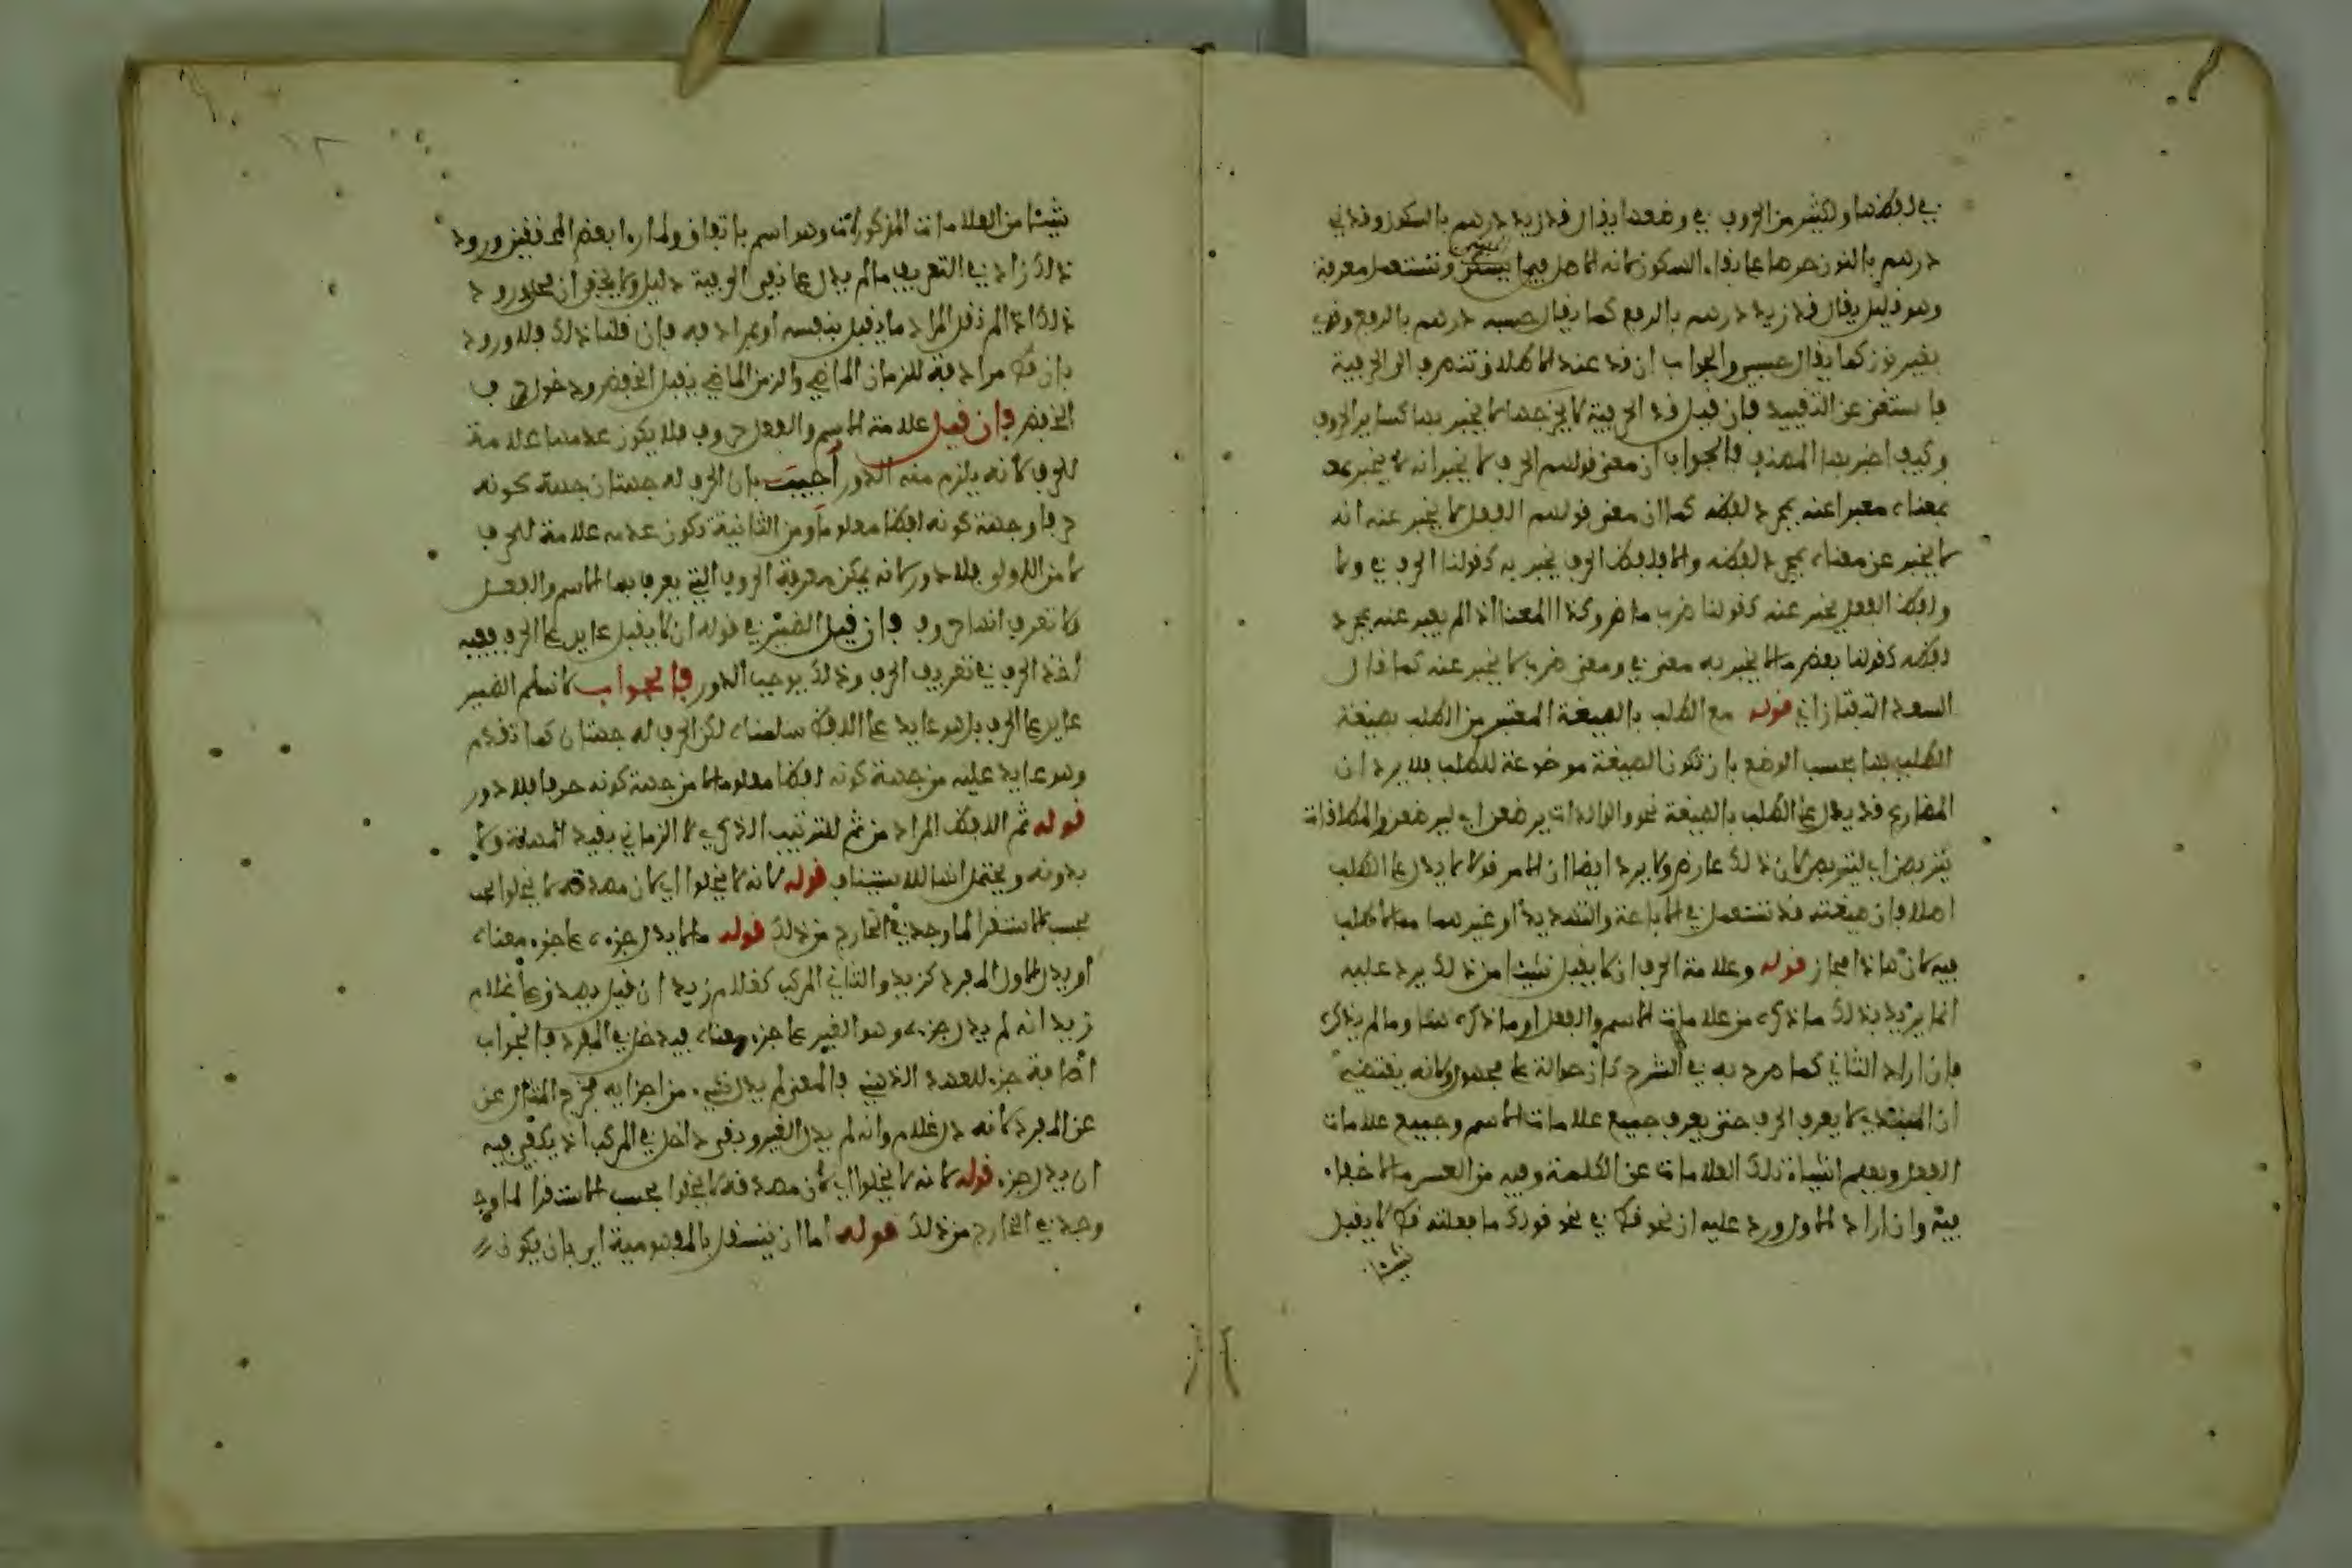 في لفظها ولكثير من الحروف في وضعها يقال قد زيد درهم بالسكون وقدني
درهم بالنون حرصا على بقاء السكون لانه الاصل فيما يبنون وتستعمل معربة
وهو قليل يقال قد زيد درهم بالرفع كما يقال حسبه درهم بالرفع وقدي
بغير نون كما يقال حسبي والجواب ان قد عند الاطلاق تنصرف الى الحرفية
فاستغنى عن التقييد فان قيل قد الحرفية لا يخبر عنها لا يخبر بها كساير الحروف
وكيف اخبر بها المصنف فالجواب ان معنى قولهم الحرف لا يخبر انه لا يخبر عنه
بمعناه معبرا عنه بمجرد لفظه كما ان معنى قولهم الفعل لا يخبر عنه انه
لا يخبر عن معناه بمجرد لفظه والا فلفظ الحرف يخبر به كقولنا الحرف في ولا
ولفظ الفعل يخبر عنه كقولنا ضرب ماض وكذا المعنا اذ الم يعبر عنه بمجرد
لفظه كقولنا بعض ما لا يخبر به معنى في ومعنى ضرب لا يخبر عنه كما قال
السعد التفتازاني قوله مع الطلب بالصيغة المعتبر من الطلب بصيغة
الطلب بها بحسب الوضع بان تكون الصيغة موضوعة للطلب فلا يرد ان
المضارع قد يدل على الطلب بالصيغة نحو والوالدات يرضعن اي ليرضعن والمطلقات
يتربصن اي ليتربصن لان ذلك عارض ولا يرد ايضا ان الامر قولا لا يدل على الطلب
اصلا فان صيغته قد تستعمل في الاباحة والتهديد او غيرهما مما لا طلب
فيه لان هاذا مجاز قوله وعلامة الحرف ان لا يقبل شيئا من ذلك يرد عليه
انما يريد بذلك ما ذكره من علامات الاسم والفعل او ما ذكره هنا وما لم يذكره
فان اراد الثاني كما صرح به في الشرح كان حوالة على مجهول ولانه يقتضي
ان المبتدي لا يعرف الحرف حتى يعرف جميع علامات الاسم وجميع علامات
الفعل ويعلم انتفاء تلك العلامات عن الكلمة وفيه من العسر ما لا خفاء
فيه وان اراد الاول ورد عليه ان نحو قط في نحو قولك ما فعلته قط لا يقبل
شيئا
شيئا من العلامات المذكورات وهو اسم باتفاق ولما راا بعض المحققين ورود
ذلك زاد في التعريف ما لم يدل على نفي الحرفية دليل ولا يخفى ان محل ورود
ذلك اذا لم نقل المراد ما يقبل بنفسه او بمرادفه فان قلنا ذلك فلا ورود
بان قط مرادفة للزمان الماضي والزمن الماضي يقبل الخفض ودخول حرف
الخفض فان قيل علامة الاسم والفعل حروف فلا يكون عدمها علامة
للحرف لانه يلزم منه الدور أجيب بان الحرف له جهتان جهة كونه
حرفا وجهة كونه لفظا معلوما ومن الثانية تكون عدمه علامة للحرف
لا من الاولى فلا دور لانه يمكن معرفة الحروف التي يعرف بها الاسم والفعل
ولا تعرف انها حروف فان قيل الضمير في قوله ان لا يقبل عايد على الحرف ففيه
اخذ الحرف في تعريف الحرف وذلك يوجب الدور فالجواب لا نسلم الضمير
عايد على الحرف بل هو عايد على اللفظ سلمناه لكن الحرف له جهتان كما تقدم
وهو عايد عليه من جهة كونه لفظا معلوما لا من جهة كونه حرفا فلا دور
قوله ثم اللفظ المراد من ثم للترتيب الذكري لا الزماني بقيد المهلة ولا
بدونه ويحتمل انها للاستيناف قوله لانه لا يخلوا اي لان مصدقه لا يخلوا بحسب
بحسب الاستقرا لما وجد في الخارج من ذلك قوله ما لا يدل جزءه على جزء معناه
او يدل الاول المفرد كزيد والثاني المركب كغلام زيد ان قيل يصدق على غلام
زيد انه لم يدل جزءه وهو الغير على جزء معناه فيدخل في المفرد فالجواب
اضافة جزء للعهد الذهني فالمعنى لم يدل شيء من اجزايه فخرج المثال عن
عن المفرد لانه دل غلام وانه لم يدل الغير وبقي داخل في المركب اذ يكفي فيه
ان يدل جزء قوله لانه لا يخلوا اي لان مصدقه لا يخلوا بحسب الاستقرا لما وجد
وجد في الخارج من ذلك قوله اما ان يستقل بالمفهومية اي بان يكون